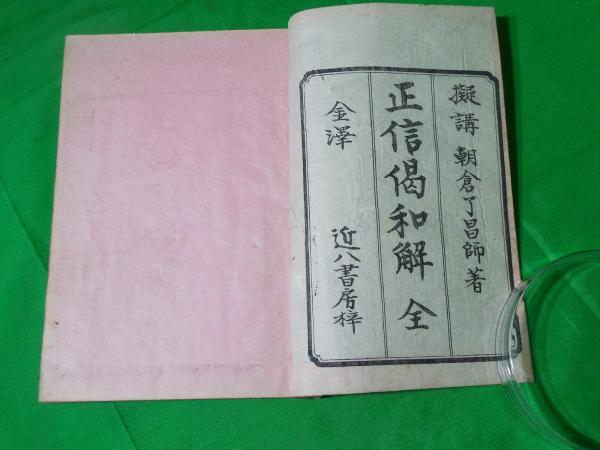 擬講 朝倉了昌師著
正信偈和解 全
金澤 近八書房梓